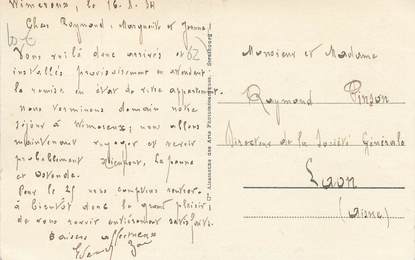 Wimereux, le 16.8.34
Chers Raymond, Marguerite et Jeanne!
Nous voilà donc arrivés et
installés provisoirement en attendant
la remise en état de votre appartement.
nous terminons demain notre
séjour à Wimereux; nous allons
maintenant voyager et revoir
probablement Nieuport, La Panne
et Ostende.
Pour le 25 nous comptons rentrer.
à bientôt donc le grand plaisir
de vous revoir entièrement satisfaits.
Baisers affectueux
Cie Alsacienne des Arts Photomécaniques, Strasbourg
Monsieur et Madame
Raymond Pinson
Directeur de la Société Générale
Laon
(Aisne)